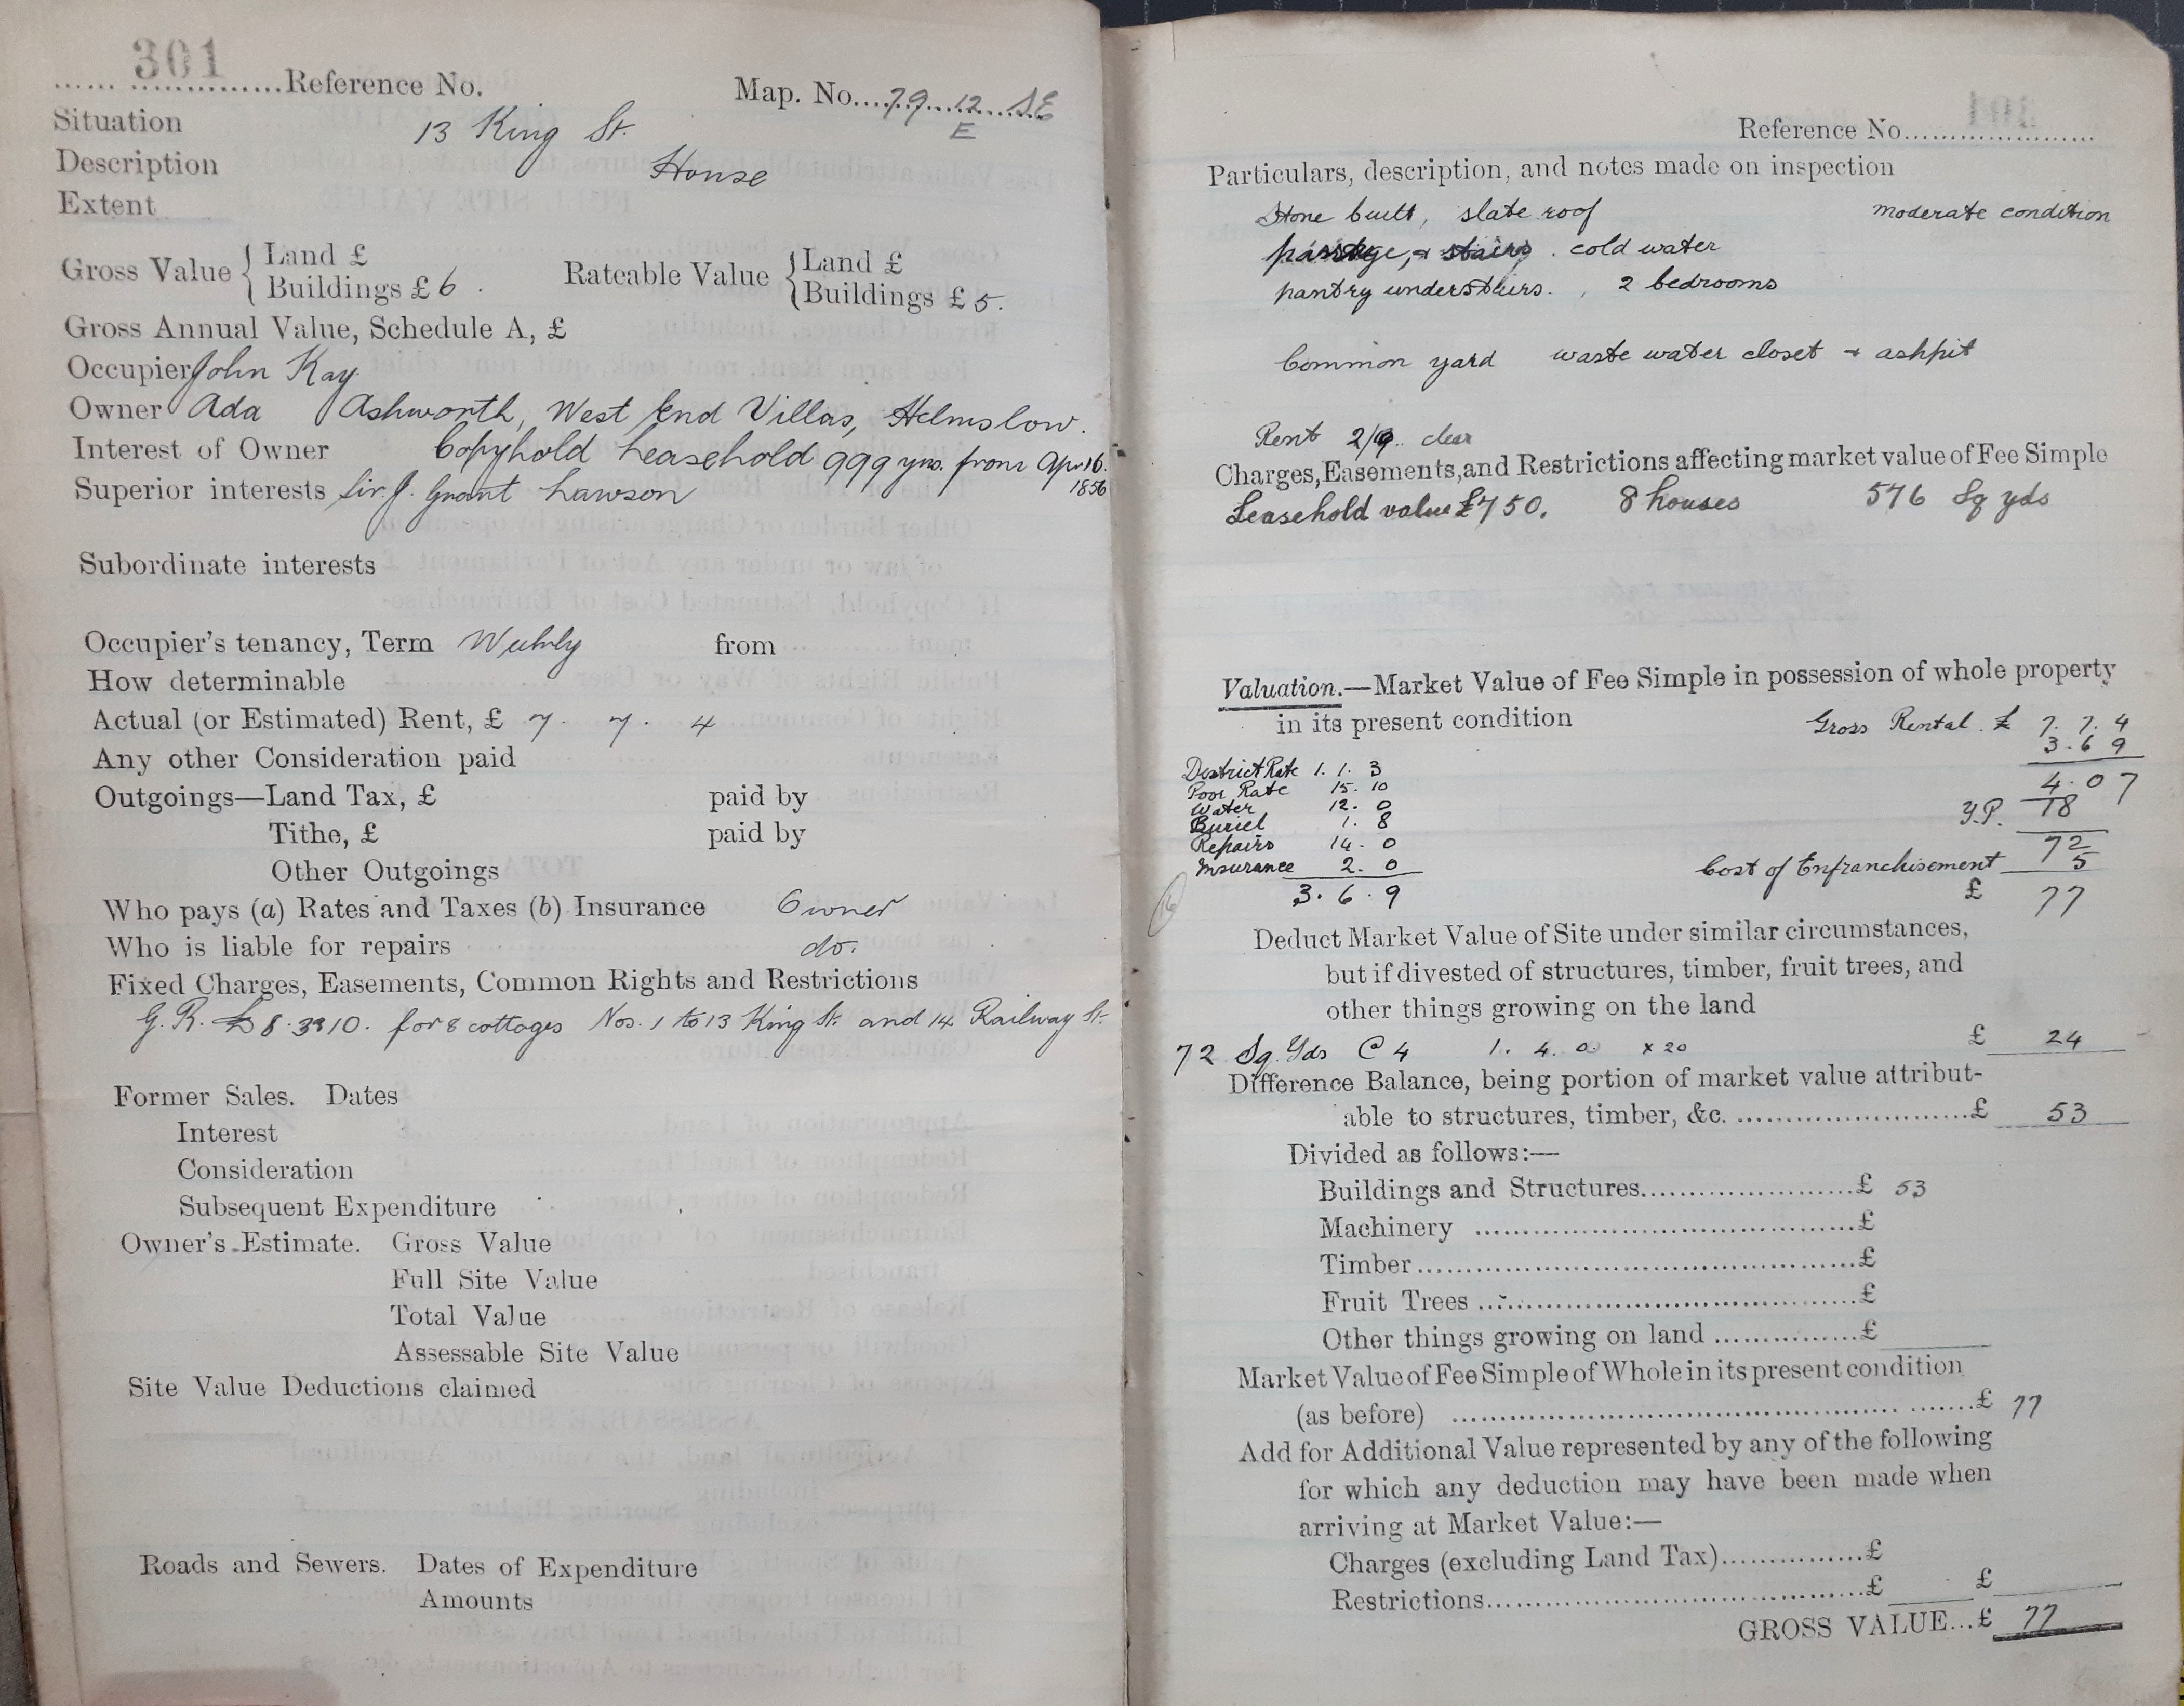 301
...... ..............Reference No.
Map. No....79...12...SE
E
Situation 13 King St.
Description House
Extent
Gross Value { Land £
Buildings £ 6 .
Rateable Value { Land £
Buildings £ 5.
Gross Annual Value, Schedule A, £
Occupier John Kay
Owner Ada Ashworth, West End Villas, Helmslow.
Interest of Owner Copyhold Leasehold 999 yrs. from Apr 16.
1856
Superior interests Sir. J. Grant Lawson
Subordinate interests
Occupier's tenancy, Term Weekly from
How determinable
Actual (or Estimated) Rent, £ 7. 7. 4
Any other Consideration paid
Outgoings—Land Tax, £ paid by
Tithe, £ paid by
Other Outgoings
Who pays (a) Rates and Taxes (b) Insurance Owner
Who is liable for repairs do.
Fixed Charges, Easements, Common Rights and Restrictions
G. R. £8.3.10. for 8 cottages Nos. 1 to 13 King St. and 14 Railway St.
Former Sales. Dates
Interest
Consideration
Subsequent Expenditure
Owner's Estimate. Gross Value
Full Site Value
Total Value
Assessable Site Value
Site Value Deductions claimed
Roads and Sewers. Dates of Expenditure
Amounts
Reference No......................
Particulars, description, and notes made on inspection
Stone built, slate roof moderate condition
passage, + stairs . cold water
pantry understairs. , 2 bedrooms
Common yard waste water closet + ashpit
Rent 2/9.. clear
Charges, Easements, and Restrictions affecting market value of Fee Simple
Leasehold value £750. 8 houses 576 Sq yds
Valuation.—Market Value of Fee Simple in possession of whole property
in its present condition Gross Rental. £ 7. 7. 4
3. 6 9
District Rate 1. 1. 3
4. 0 7
Poor Rate 15. 10
Y.P. 18
Water 12. 0
Buriel 1. 8
72
Repairs 14. 0
Cost of Enfranchisement 5
Insurance 2. 0
£ 77
3. 6. 9
Deduct Market Value of Site under similar circumstances,
but if divested of structures, timber, fruit trees, and
other things growing on the land
72 Sq. Yds @ 4 1. 4. 0. x 20 £ 24
Difference Balance, being portion of market value attribut-
able to structures, timber, &c. ..........................£ 53
Divided as follows:—
Buildings and Structures.......................£ 53
Machinery .........................................£
Timber................................................£
Fruit Trees .........................................£
Other things growing on land ................£
Market Value of Fee Simple of Whole in its present condition
(as before) .................................................... .......£ 77
Add for Additional Value represented by any of the following
for which any deduction may have been made when
arriving at Market Value:—
Charges (excluding Land Tax)...............£
Restrictions.........................................£ £
GROSS VALUE...£ 77